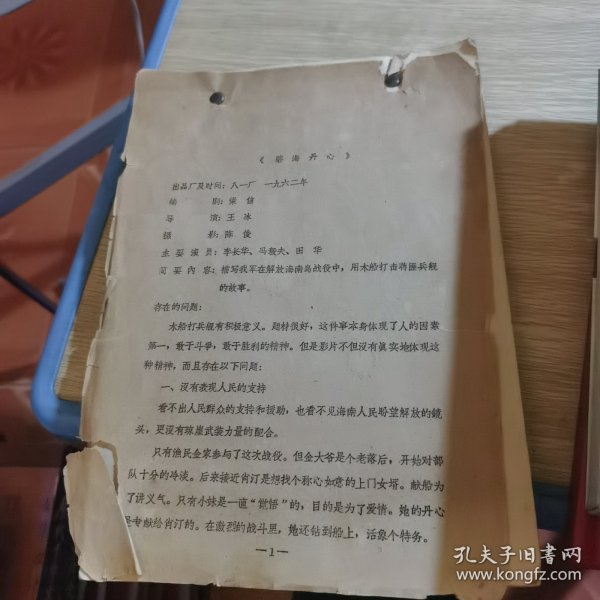 《碧海丹心》
出品厂及时间：八一厂 一九六二年
编 剧：梁信
导 演：王冰
摄 影：陈俊
主要演员：李长华、马毅夫、田华
简要内容：描写我军在解放海南岛战役中，用木船打击蒋匪兵舰
的故事。
存在的问题：
木船打兵舰有积极意义。题材很好，这件事本身体现了人的因素
第一，敢于斗争，敢于胜利的精神。但是影片不但没有真实地体现这
种精神，而且存在以下问题：
一、没有表现人民的支持
看不出人民群众的支持和援助，也看不见海南人民盼望解放的镜
头，更没有琼崖武装力量的配合。
只有渔民金家参与了这次战役。但金大爷是个老落后，开始对部
队十分的冷淡。后来接近肖汀是想找个称心如意的上门女婿。献船为
了讲义气。只有小妹是一直“觉悟”的，目的是为了爱情。她的丹心
是专献给肖汀的。在激烈的战斗里，她还钻到船上，活象个特务。
—1—
孔夫子旧书网
www.kongfz.com